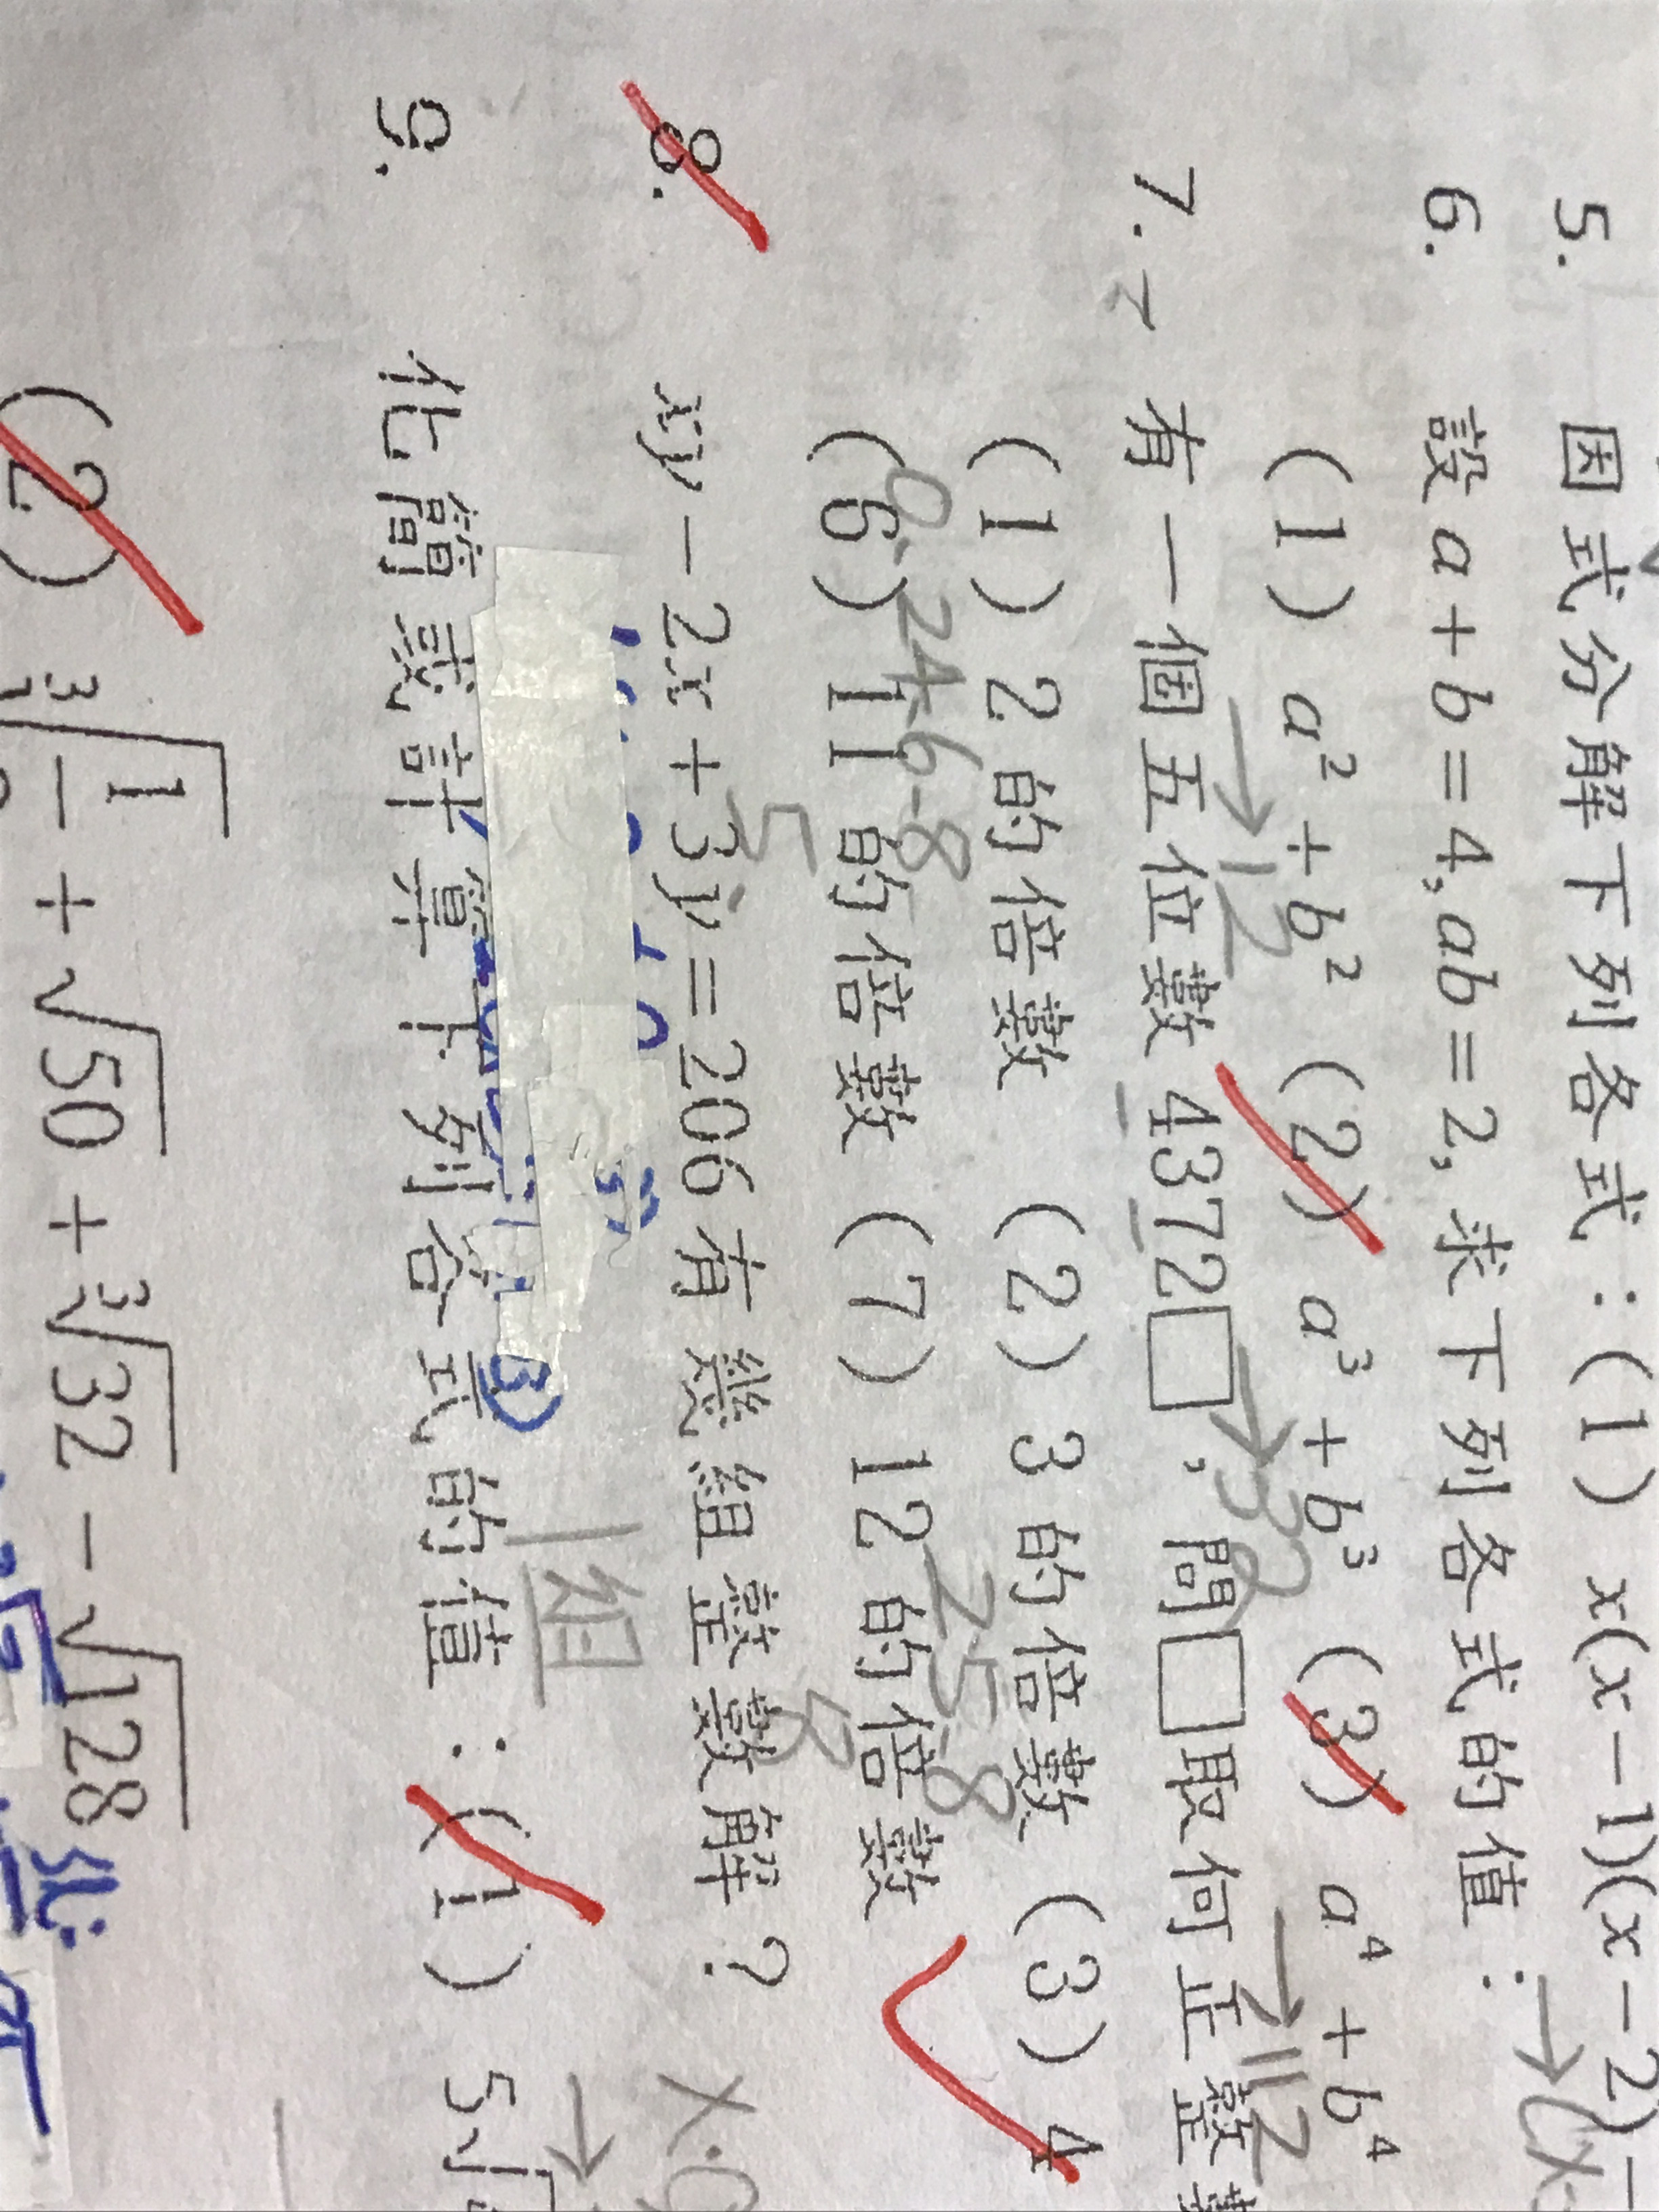 5. 因式分解下列各式：(1) x(x－1)(x－2)－
6. 設 a＋b＝4, ab＝2, 求下列各式的值：
(1) a²＋b² (2) a³＋b³ (3) a⁴＋b⁴
→12 →32 →112
7. 有一個五位數 4372□，問□取何正整數
(1) 2 的倍數 (2) 3 的倍數 (3) 4
0.2.4.6.8 2.5.8
(6) 11 的倍數 (7) 12 的倍數
5 8
8. xy－2x＋3y＝206 有幾組整數解？
1組
9. 化簡或計算下列各式的值：(1) 5√
(2) ³√1＋√50＋³√32－√128